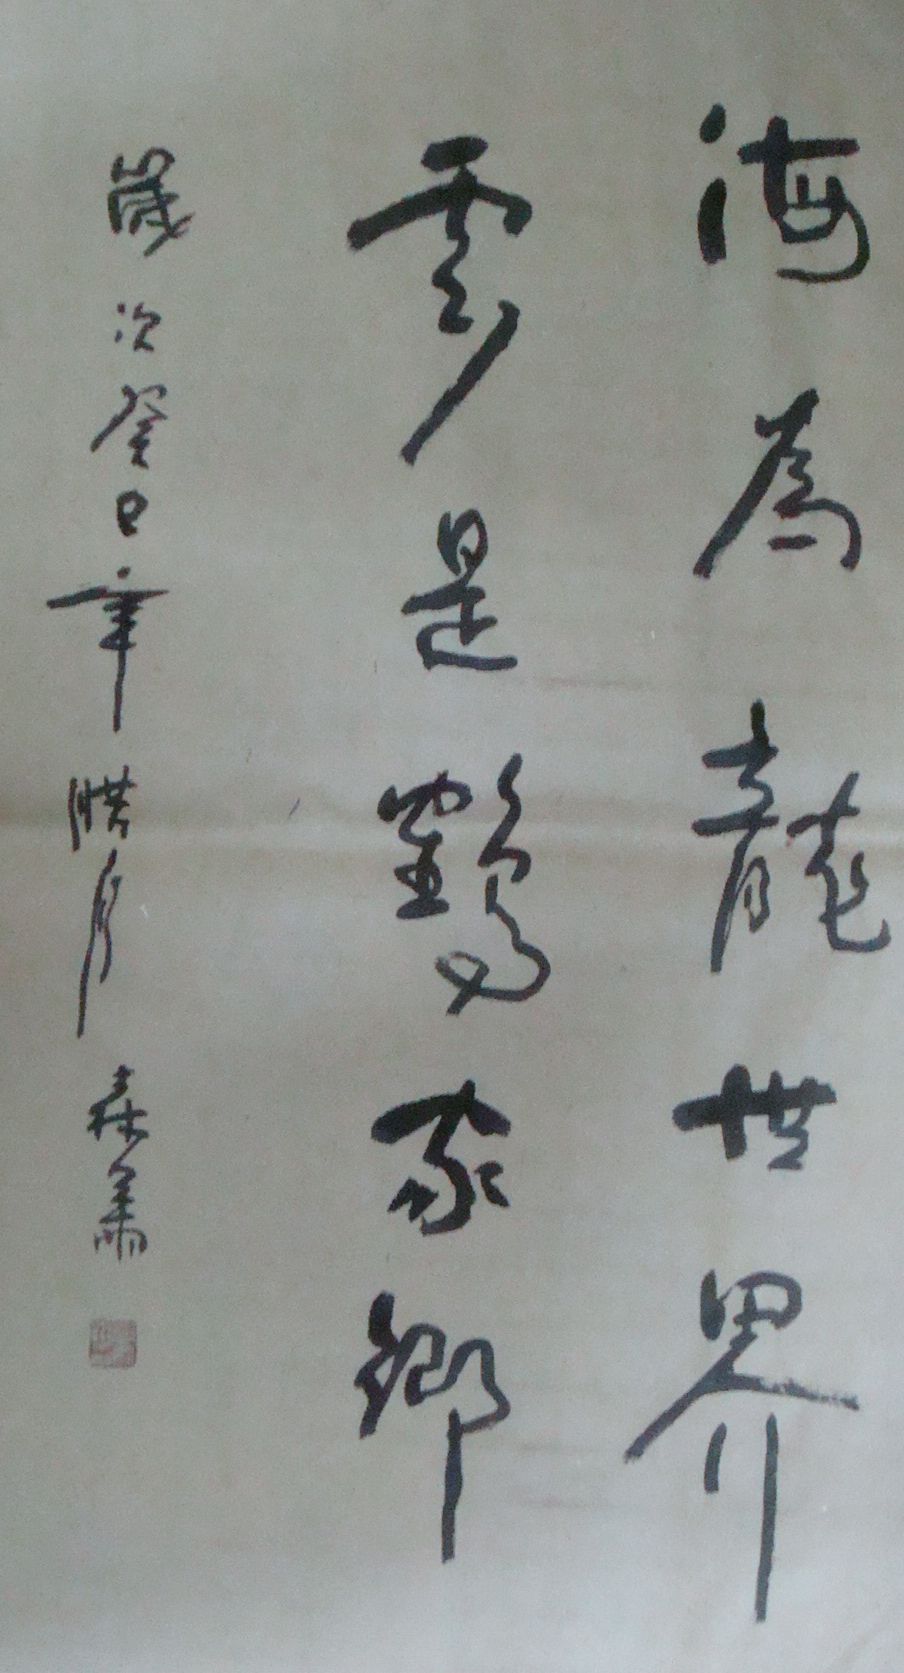 海為龍世界
雲是鶴家鄉
歲次癸巳年